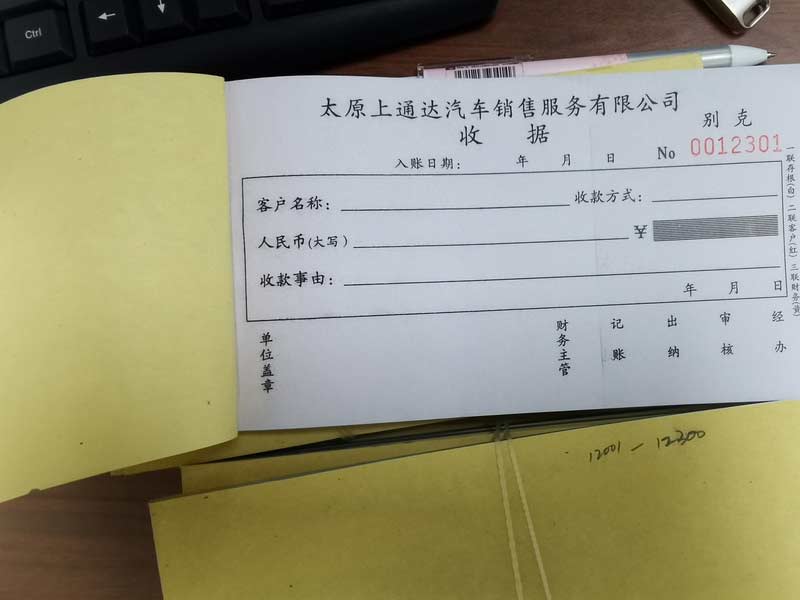 Ctrl
太原上通达汽车销售服务有限公司
收据
别克
入账日期： 年 月 日 No 0012301
客户名称： 收款方式：
人民币(大写) ¥
收款事由：
年 月 日
单位盖章 财务主管 记账 出纳 审核 经办
一联存根(白) 二联客户(红) 三联财务(黄)
12001 — 12300